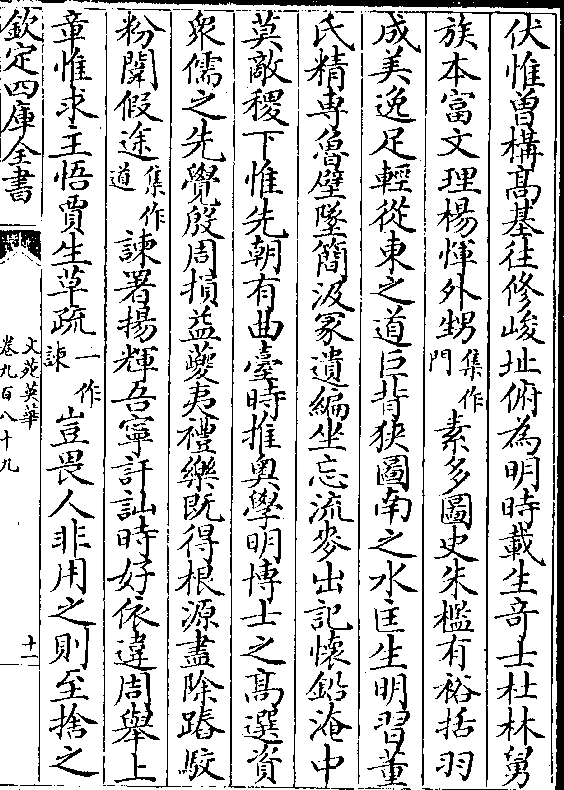 伏惟曽構髙基往修峻址俯為明時載生竒士杜林舅
族本富文理楊惲外甥集作門素多圖史朱檻有裕括羽
成美逸足輕從東之道巨背狹圖南之水匡生明習董
氏精専魯壁墜簡汲冢遺編坐忘流麥出記懐鉛淹中
莫敵稷下惟先朝有曲臺時推奥學明博士之髙選資
衆儒之先覺殷周損益夔夷禮樂既得根源盡除踳駮
粉闈假途集作道諫署揚輝吾寧訐訕時好依違周舉上
章惟求主悟賈生草疏一作諫豈畏人非用之則至捨之
欽定四庫全書
文苑英華
卷九百八十九
十一